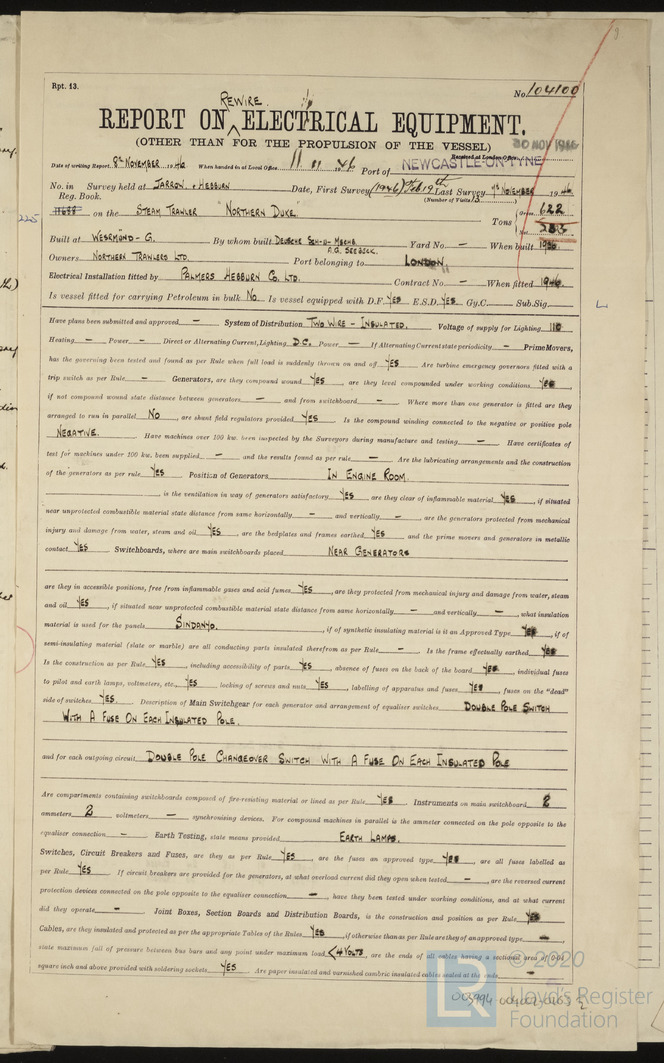 Rpt. 13.
No. 104100
REWIRE
REPORT ON ELECTRICAL EQUIPMENT.
(OTHER THAN FOR THE PROPULSION OF THE VESSEL)
30 NOV 1946
Received at London Office
Date of writing Report 8th NOVEMBER 1946 When handed in at Local Office 11 . 11 . 46 Port of NEWCASTLE-ON-TYNE
No. in Survey held at JARROW & HEBBURN Date, First Survey (1946) Feb 19th Last Survey 7th NOVEMBER 1946
Reg. Book. (Number of Visits 13)
225 on the STEAM TRAWLER "NORTHERN DUKE" Tons Gross 622
Net
Built at WESRMÜND - G. By whom built DEUTSCHE SCH-U- MSCHB. A.G. SEEBECK. Yard No. - When built 1936
Owners NORTHERN TRAWLERS LTD. Port belonging to LONDON.
Electrical Installation fitted by PALMERS HEBBURN CO. LTD. Contract No. - When fitted 1946
Is vessel fitted for carrying Petroleum in bulk NO Is vessel equipped with D.F. YES E.S.D. YES Gy.C. Sub.Sig.
Have plans been submitted and approved - System of Distribution TWO WIRE - INSULATED. Voltage of supply for Lighting 110
Heating - Power - Direct or Alternating Current, Lighting D.C. Power - If Alternating Current state periodicity - Prime Movers,
has the governing been tested and found as per Rule when full load is suddenly thrown on and off YES Are turbine emergency governors fitted with a
trip switch as per Rule - Generators, are they compound wound YES, are they level compounded under working conditions YES,
if not compound wound state distance between generators - and from switchboard - Where more than one generator is fitted are they
arranged to run in parallel NO, are shunt field regulators provided YES Is the compound winding connected to the negative or positive pole
NEGATIVE. Have machines over 100 kw. been inspected by the Surveyors during manufacture and testing - Have certificates of
test for machines under 100 kw. been supplied - and the results found as per rule - Are the lubricating arrangements and the construction
of the generators as per rule YES Position of Generators IN ENGINE ROOM.
, is the ventilation in way of generators satisfactory YES, are they clear of inflammable material YES, if situated
near unprotected combustible material state distance from same horizontally - and vertically -, are the generators protected from mechanical
injury and damage from water, steam and oil YES, are the bedplates and frames earthed YES and the prime movers and generators in metallic
contact YES Switchboards, where are main switchboards placed NEAR GENERATORS
are they in accessible positions, free from inflammable gases and acid fumes YES, are they protected from mechanical injury and damage from water, steam
and oil YES, if situated near unprotected combustible material state distance from same horizontally - and vertically -, what insulation
material is used for the panels SINDANYO., if of synthetic insulating material is it an Approved Type YES, if of
semi-insulating material (slate or marble) are all conducting parts insulated therefrom as per Rule - Is the frame effectually earthed YES
Is the construction as per Rule YES, including accessibility of parts YES, absence of fuses on the back of the board YES, individual fuses
to pilot and earth lamps, voltmeters, etc. YES locking of screws and nuts YES, labelling of apparatus and fuses YES, fuses on the "dead"
side of switches YES. Description of Main Switchgear for each generator and arrangement of equaliser switches DOUBLE POLE SWITCH
WITH A FUSE ON EACH INSULATED POLE.
and for each outgoing circuit DOUBLE POLE CHANGEOVER SWITCH WITH A FUSE ON EACH INSULATED POLE
Are compartments containing switchboards composed of fire-resisting material or lined as per Rule YES Instruments on main switchboard 2
ammeters 2 voltmeters - synchronising devices. For compound machines in parallel is the ammeter connected on the pole opposite to the
equaliser connection - Earth Testing, state means provided EARTH LAMPS.
Switches, Circuit Breakers and Fuses, are they as per Rule YES, are the fuses an approved type YES, are all fuses labelled as
per Rule YES If circuit breakers are provided for the generators, at what overload current did they open when tested -, are the reversed current
protection devices connected on the pole opposite to the equaliser connection -, have they been tested under working conditions, and at what current
did they operate - Joint Boxes, Section Boards and Distribution Boards, is the construction and position as per Rule YES
Cables, are they insulated and protected as per the appropriate Tables of the Rules YES, if otherwise than as per Rule are they of an approved type -,
state maximum fall of pressure between bus bars and any point under maximum load <4 VOLTS, are the ends of all cables having a sectional area of 0.01
square inch and above provided with soldering sockets YES Are paper insulated and varnished cambric insulated cables sealed at the ends -
© 2020
Lloyd's Register
Foundation
LR